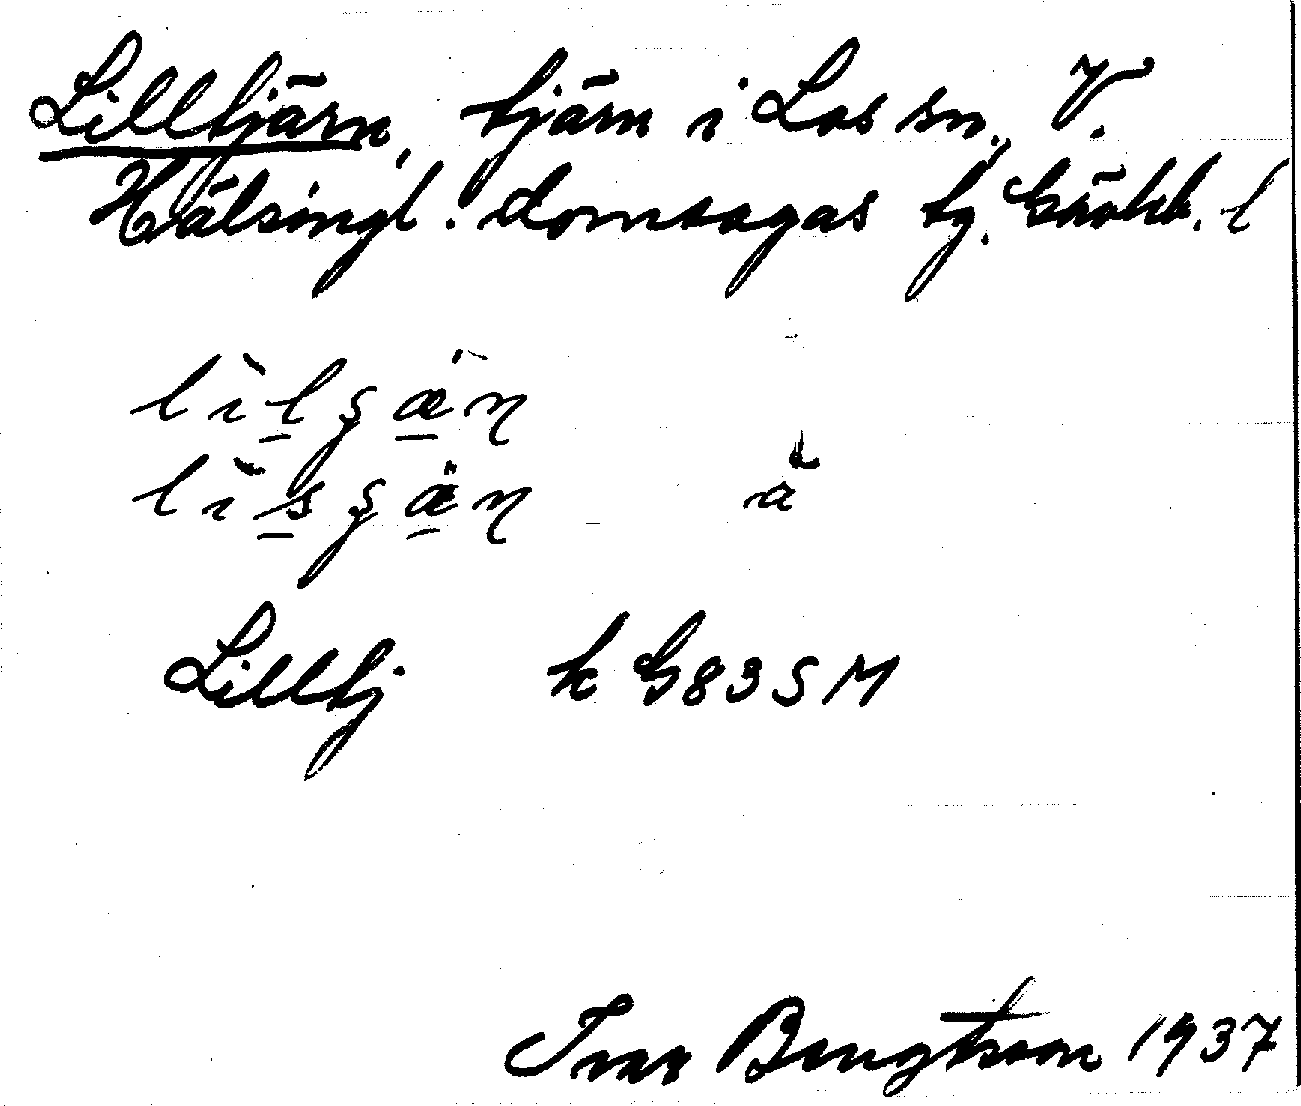 Lilltjärn, tjärn i Los sn, V.
Hälsingl. domsagas tg. Gävleb. l
lìlʂæ̀ɳ
lìsʂæ̀ɳ ä
Lilltj k G 83 S M
Ivar Bengtsson 1937